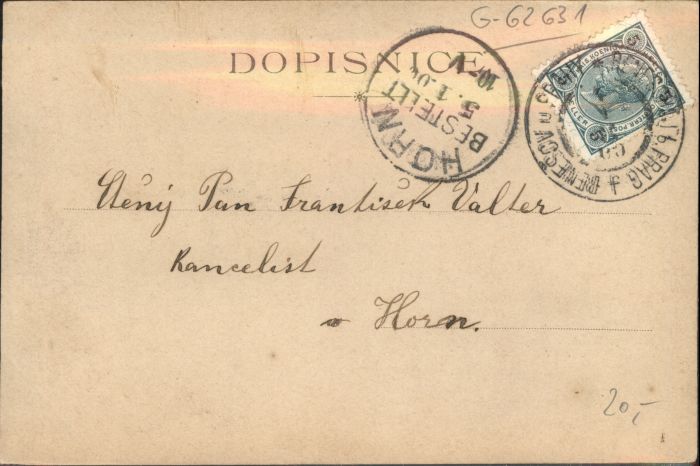 G-62631
DOPISNICE
HORN
BESTELLT
5.1.0
107.V
BENESOV
PRAG
5
Ctěný Pan Frantisek Valter
Kancelist
v Horn.
20,-